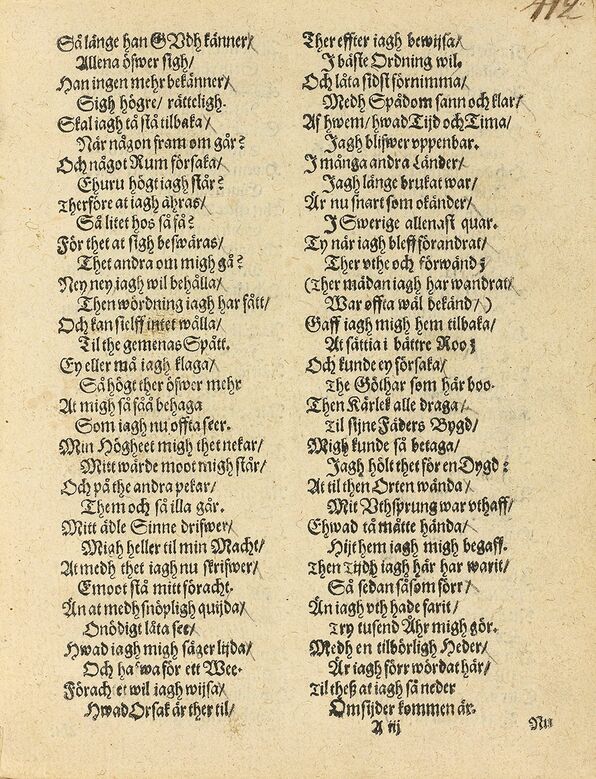 412
Så länge han GVdh känner/
Allena öfwer sigh/
Han ingen mehr bekänner/
Sigh högre/ rätteligh.
Skal iagh tå stå tilbaka/
När någon fram om går?
Och något Rum försaka/
Ehuru högt iagh står?
Therföre at iagh ähras/
Så litet hos så få?
För thet at sigh beswäras/
Thet andra om migh gå?
Ney ney iagh wil behålla/
Then wördning iagh har fått/
Och kan sielff intet wålla/
Til the gemenas Spått.
Ey eller må iagh klaga/
Så högt ther öfwer mehr
At migh så fåå behaga
Som iagh nu offta seer.
Min Högheet migh thet nekar/
Mitt wärde moot migh står/
Och på the andra pekar/
Them och så illa går.
Mitt ädle Sinne drifwer/
Migh heller til min Macht/
At medh thet iagh nu skrifwer/
Emoot stå mitt föracht.
Än at medh snöpligh quijda/
Onödigt låta see/
Hwad iagh migh säger lijda/
Och hafwa för ett Wee.
Förachtet wil iagh wijsa/
Hwad Orsak är ther til/
Ther effter iagh bewijsa/
I bäste Ordning wil.
Och låta sidst förnimma/
Medh Spådom sann och klar/
Af hwem/ hwad Tijd och Tima/
Jagh blifwer vppenbar.
J många andra Länder/
Jagh länge brukat war/
Är nu snart som okänder/
J Swerige allenast quar.
Ty när iagh bleff förandrat/
Ther vthe och förwänd;
(Ther mädan iagh har wandrat/
War offta wäl bekänd/)
Gaff iagh migh hem tilbaka/
At sättia i bättre Roo;
Och kunde ey försaka/
The Göthar som här boo.
Then Kärlek alle draga/
Til sijne Fäders Bygd/
Migh kunde så betaga/
Jagh hölt thet för en Dygd;
At til then Orten wända/
Mit Vthsprung war vthaff/
Ehwad tå måtte hända/
Hijt hem iagh migh begaff.
Then Tijdh iagh här har warit/
Så sedan såsom förr/
Än iagh vth hade farit/
Try tusend Åhr migh gör.
Medh en tilbörligh Heder/
Är iagh förr wördat här/
Til theß at iagh så neder
Omsijder kommen är.
A iij
Nu